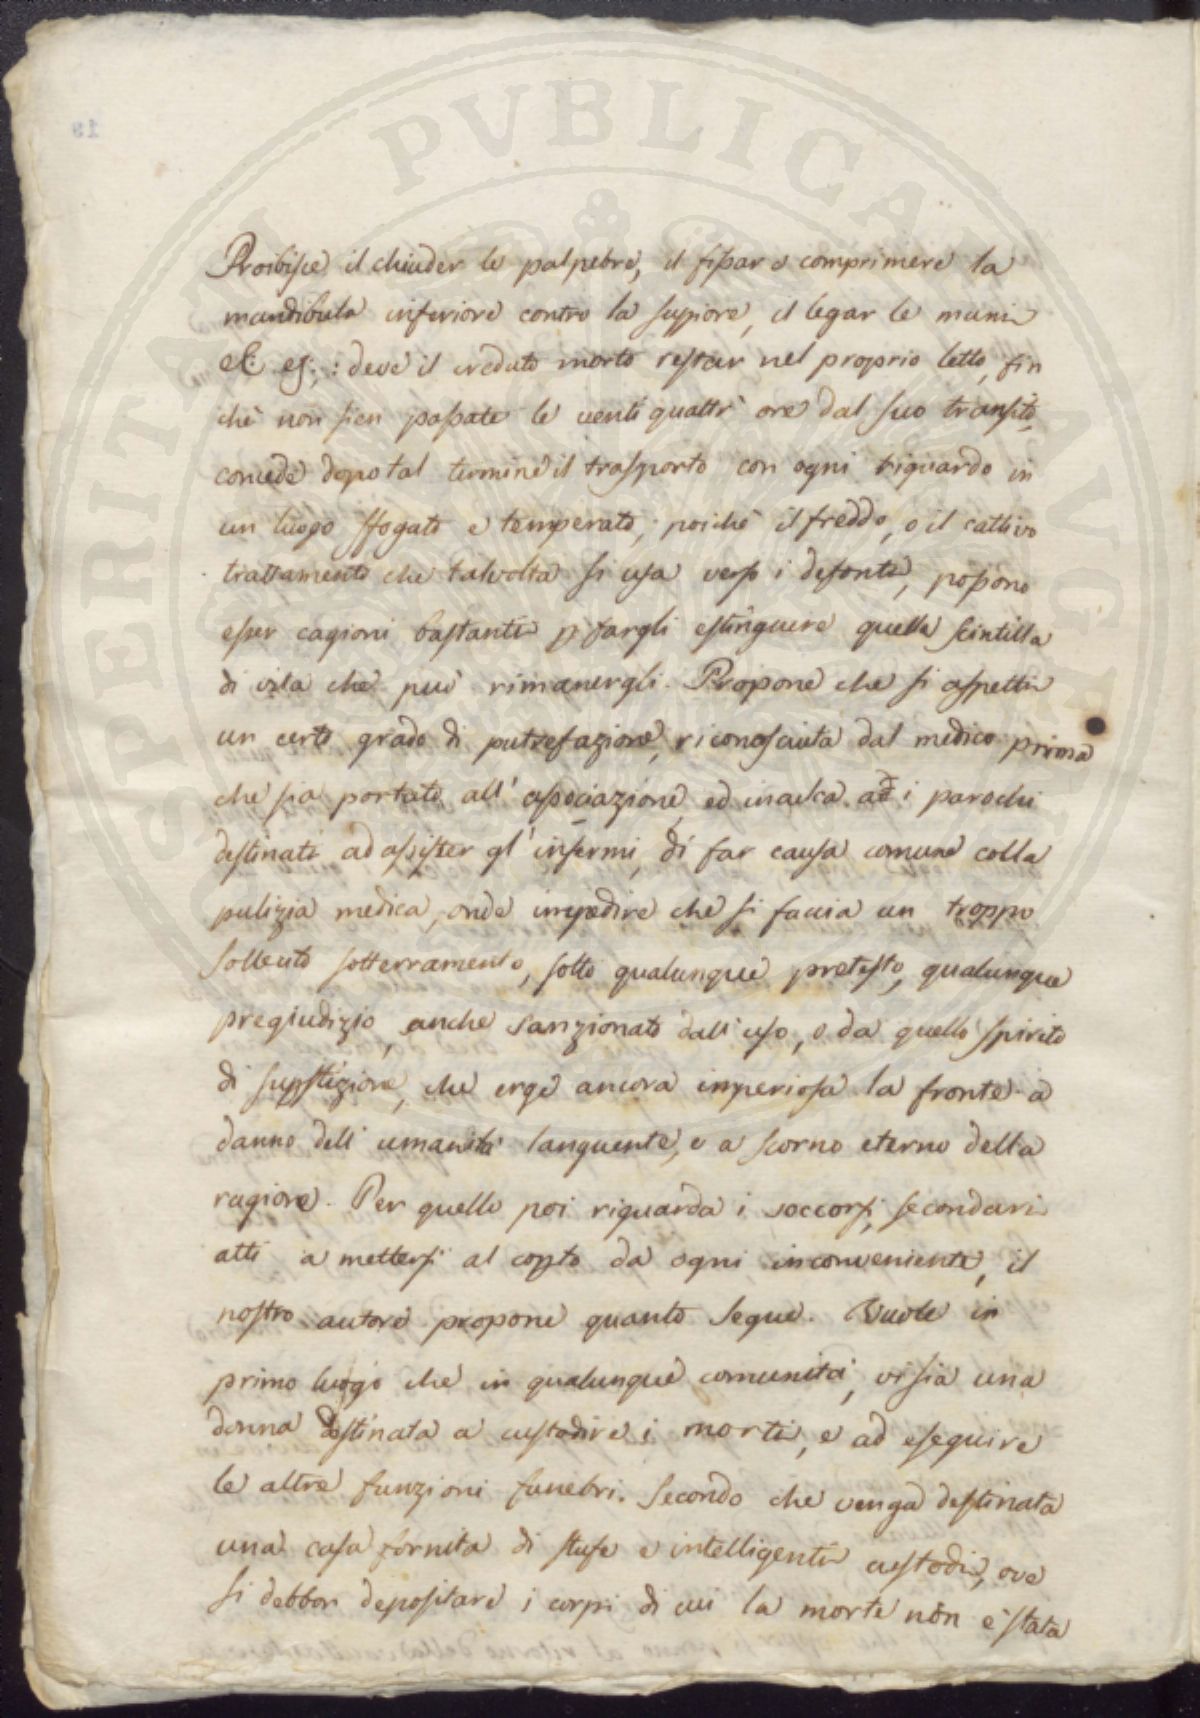 PROSPERITATI PVBLICAE AVGENDAE
Proibisce il chiuder le palpebre, il fissar o comprimere la
mandibula inferiore contro la suppiore, il legar le mani
&: : deve il creduto morto restar nel proprio letto, fin
chè non sien passate le venti quattr' ore dal suo transito,
concede dopo tal termine il trasporto con ogni riguardo in
un luogo sfogato e temperato; poichè il freddo, o il cattivo
trattamento che talvolta si usa verso i defonti, possono
esser cagioni bastanti p fargli estinguere quella scintilla
di vita che può rimanergli. Propone che si aspetti
un certo grado di putrefazione, riconosciuta dal medico prima
che sia portato all' associazione, ed inculca ad i parochi
destinati ad assister gl' infermi, di far causa comune colla
pulizia medica, onde impedire che si faccia un troppo
sollecito sotterramento, sotto qualunque pretesto, qualunque
pregiudizio, anche sanzionato dall' uso, o da quello spirito
di supstizione, che erge ancora imperiosa la fronte a
danno dell' umanità languente, e a scorno eterno della
ragione. Per quello poi riguarda i soccorsi, secondari
atti a mettersi al copto da ogni inconveniente, il
nostro autore propone quanto segue. Vuole in
primo luogo che in qualunque comunità, vi sia una
donna destinata a custodire i morti, e ad eseguire
le altre funzioni funebri. Secondo che venga destinata
una casa fornita di stufe e intelligenti custodi, ove
si debbon depositare i corpi di cui la morte non è stata